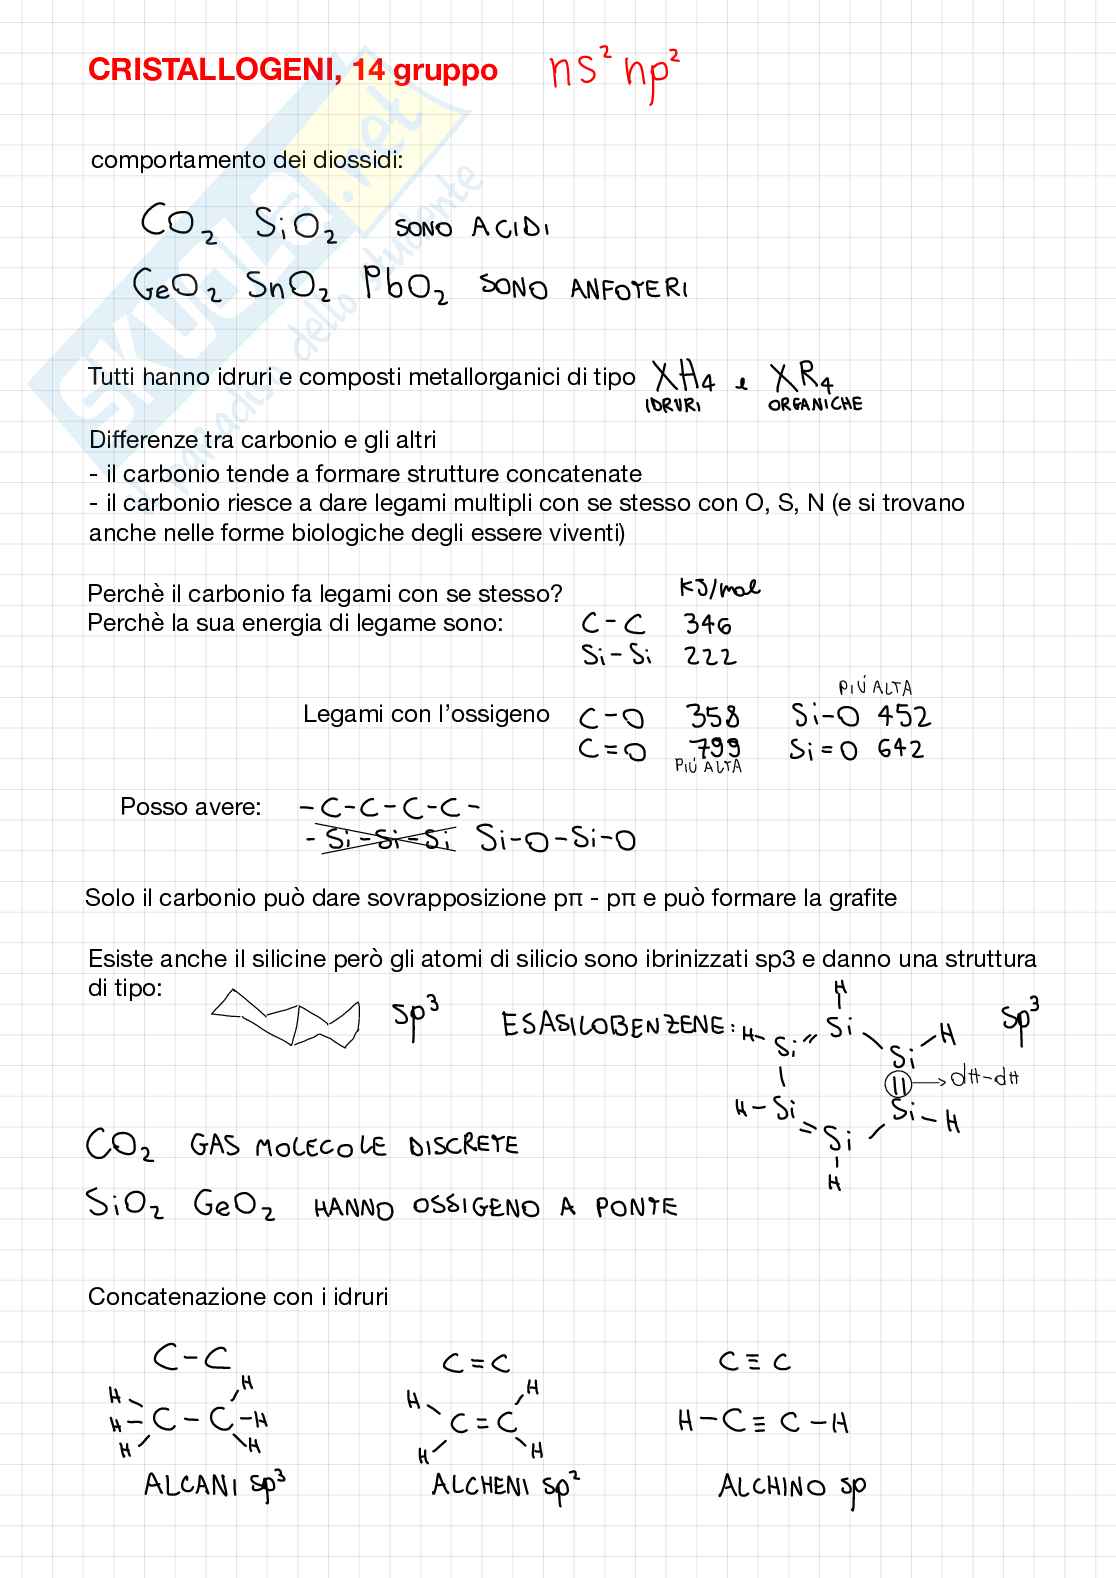 CRISTALLOGENI, 14 gruppo ns² np²
comportamento dei diossidi:
CO₂ SiO₂ SONO ACIDI
GeO₂ SnO₂ PbO₂ SONO ANFOTERI
Tutti hanno idruri e composti metallorganici di tipo XH₄ e XR₄
IDRURI ORGANICHE
Differenze tra carbonio e gli altri
- il carbonio tende a formare strutture concatenate
- il carbonio riesce a dare legami multipli con se stesso con O, S, N (e si trovano
anche nelle forme biologiche degli essere viventi)
Perchè il carbonio fa legami con se stesso? KJ/mol
Perchè la sua energia di legame sono: C-C 346
Si-Si 222
PIÚ ALTA
Legami con l'ossigeno C-O 358 Si-O 452
C=O 799 Si=O 642
PIÚ ALTA
Posso avere: -C-C-C-C-
-Si-Si-Si Si-O-Si-O
Solo il carbonio può dare sovrapposizione pπ - pπ e può formare la grafite
Esiste anche il silicine però gli atomi di silicio sono ibrinizzati sp3 e danno una struttura
di tipo: sp³ ESASILOBENZENE: sp³
H
H-Si=Si-Si-H
dπ-dπ
H-Si=Si-Si-H
H
CO₂ GAS MOLECOLE DISCRETE
SiO₂ GeO₂ HANNO OSSIGENO A PONTE
Concatenazione con i idruri
C-C C=C C≡C
H H H H
H-C-C-H C=C H-C≡C-H
H H H H
ALCANI sp³ ALCHENI sp² ALCHINO sp
SKUOLA.net
il paradiso dello studente